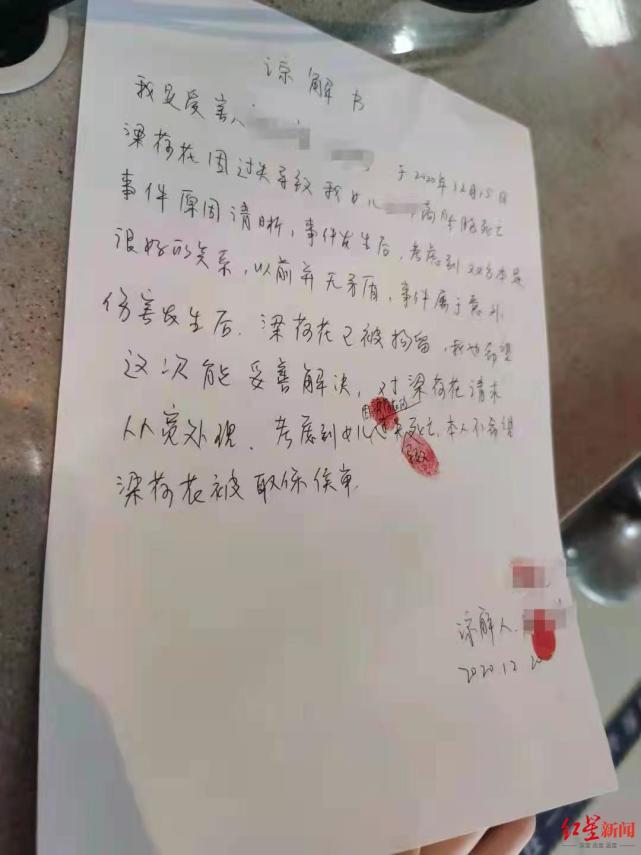 谅解书
我是受害人 于2020年12月15日
梁荷花因过失导致我女儿 死亡
事件原因清晰，事件发生后，考虑到双方本是
很好的关系，以前并无矛盾，事件属于意外
伤害发生后，梁荷花已被拘留，我也希望
这次能妥善解决，对梁荷花请求
从宽处理，考虑到女儿 死亡，本人不希望
梁荷花被取保候审
谅解人
2020.12.20
红星新闻
深度 态度 温度